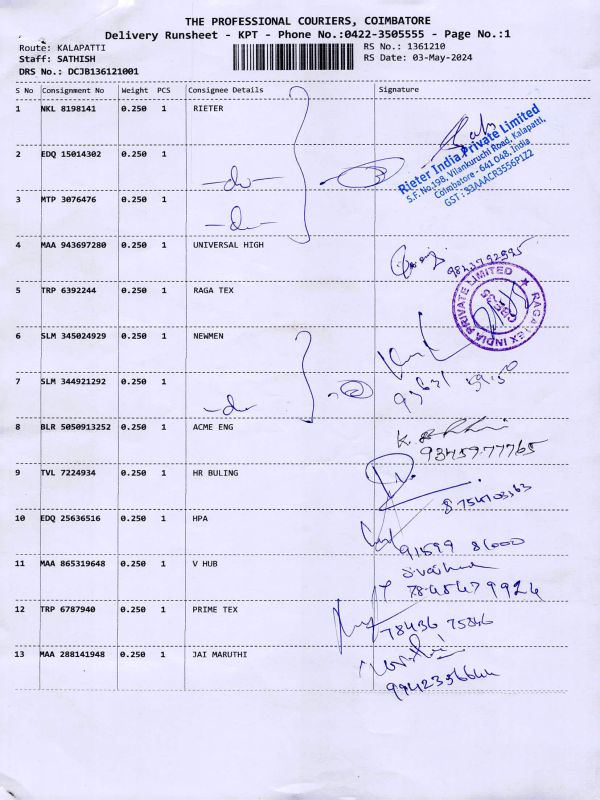 THE PROFESSIONAL COURIERS, COIMBATORE
Delivery Runsheet - KPT - Phone No.:0422-3505555 - Page No.:1
Route: KALAPATTI
RS No.: 1361210
Staff: SATHISH
RS Date: 03-May-2024
DRS No.: DCJB136121001
S No Consignment No Weight PCS Consignee Details Signature
1 NKL 8198141 0.250 1 RIETER
Rieter India Private Limited
S.F. No.198, Vilankuruchi Road, Kalapatti,
Coimbatore - 641 048, India
GST : 33AAACR3556P1Z2
2 EDQ 15014302 0.250 1
-do-
3 MTP 3076476 0.250 1
-do-
4 MAA 943697280 0.250 1 UNIVERSAL HIGH
5 TRP 6392244 0.250 1 RAGA TEX
RAGA TEX INDIA PRIVATE LIMITED
6 SLM 345024929 0.250 1 NEWMEN
7 SLM 344921292 0.250 1
-do-
8 BLR 5050913252 0.250 1 ACME ENG
9345977765
9 TVL 7224934 0.250 1 HR BULING
10 EDQ 25636516 0.250 1 HPA
91599 81000
11 MAA 865319648 0.250 1 V HUB
12 TRP 6787940 0.250 1 PRIME TEX
78436 75846
13 MAA 288141948 0.250 1 JAI MARUTHI
9942356644